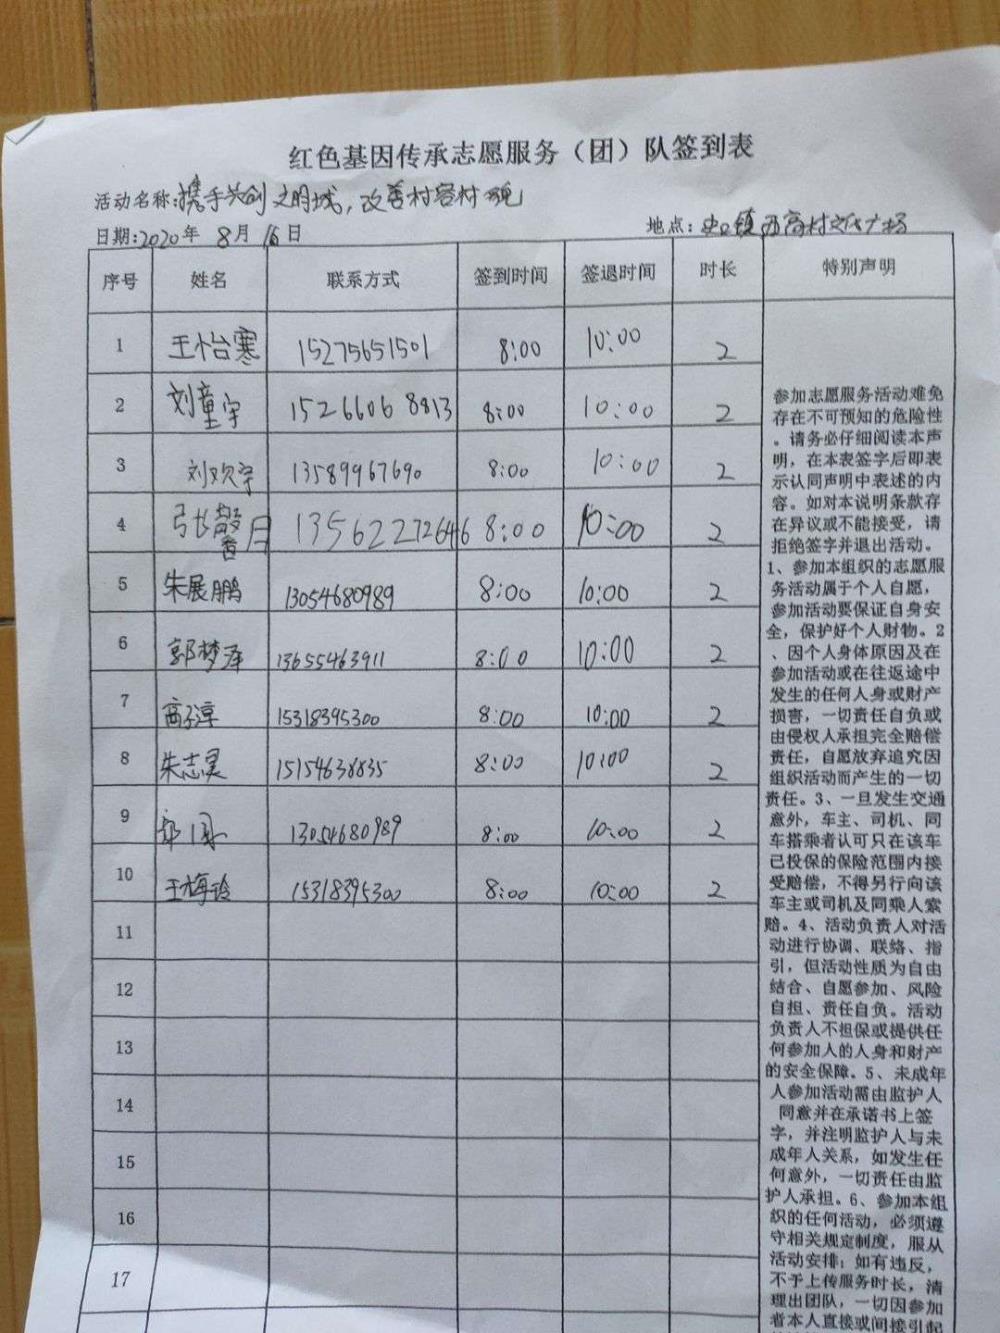 红色基因传承志愿服务（团）队签到表
活动名称:携手共创文明城，改善村容村貌
日期:2020年 8月 16日
地点:史口镇西商村文化广场
序号 姓名 联系方式 签到时间 签退时间 时长 特别声明
1 王怡寒 15275651501 8:00 10:00 2
2 刘童宇 15266068813 8:00 10:00 2
3 刘欢宇 13589967690 8:00 10:00 2
4 张馨月 13562272646 8:00 10:00 2
5 朱展鹏 13054680989 8:00 10:00 2
6 郭梦泽 13655463911 8:00 10:00 2
7 高淳 15318395300 8:00 10:00 2
8 朱志昊 15154638835 8:00 10:00 2
9 13054680989 8:00 10:00 2
10 王梅玲 15318395300 8:00 10:00 2
11
12
13
14
15
16
17
参加志愿服务活动难免
存在不可预知的危险性
。请务必仔细阅读本声
明，在本表签字后即表
示认同声明中表述的内
容。如对本说明条款存
在异议或不能接受，请
拒绝签字并退出活动。
1、参加本组织的志愿服
务活动属于个人自愿，
参加活动要保证自身安
全，保护好个人财物。2
、因个人身体原因及在
参加活动或在往返途中
发生的任何人身或财产
损害，一切责任自负或
由侵权人承担完全赔偿
责任，自愿放弃追究因
组织活动而产生的一切
责任。3、一旦发生交通
意外，车主、司机、同
车搭乘者认可只在该车
已投保的保险范围内接
受赔偿，不得另行向该
车主或司机及同乘人索
赔。4、活动负责人对活
动进行协调、联络、指
引，但活动性质为自由
结合、自愿参加、风险
自担、责任自负。活动
负责人不担保或提供任
何参加人的人身和财产
的安全保障。5、未成年
人参加活动需由监护人
同意并在承诺书上签
字，并注明监护人与未
成年人关系，如发生任
何意外，一切责任由监
护人承担。6、参加本组
织的任何活动，必须遵
守相关规定制度，服从
活动安排；如有违反，
不予上传服务时长，清
理出团队，一切因参加
者本人直接或间接引起